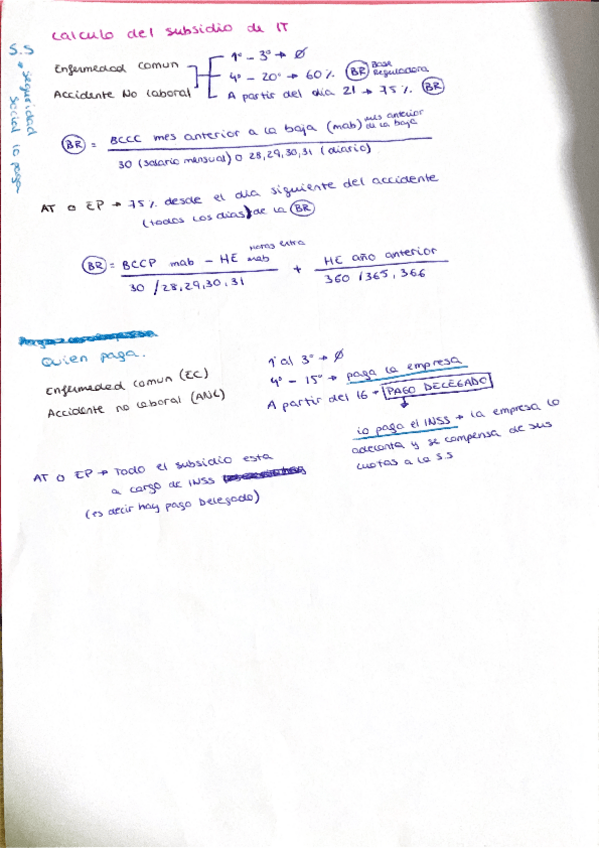 calculo del subsidio de IT
S.S
→ Seguridad
Social lo paga
Enfermedad comun
Accidente No laboral
1º - 3º → Ø
4º - 20º → 60% (BR) Base Reguladora
A partir del día 21 → 75% (BR)
(BR) = BCCC mes anterior a la baja (mab) mes anterior de la baja
30 (salario mensual) o 28,29,30,31 (diario)
AT o EP → 75% desde el dia siguiente del accidente
(todos los días) de la (BR)
(BR) = BCCP mab - HE horas extra mab + HE año anterior
30 / 28,29,30,31
360 / 365, 366
Quien paga.
Enfermedad comun (EC)
Accidente no laboral (ANL)
1º al 3º → Ø
4º - 15º → paga la empresa
A partir del 16 → PAGO DELEGADO
lo paga el INSS → la empresa lo
adelanta y se compensa de sus
cuotas a la S.S
AT o EP → Todo el subsidio esta
a cargo de INSS
(es decir hay pago delegado)